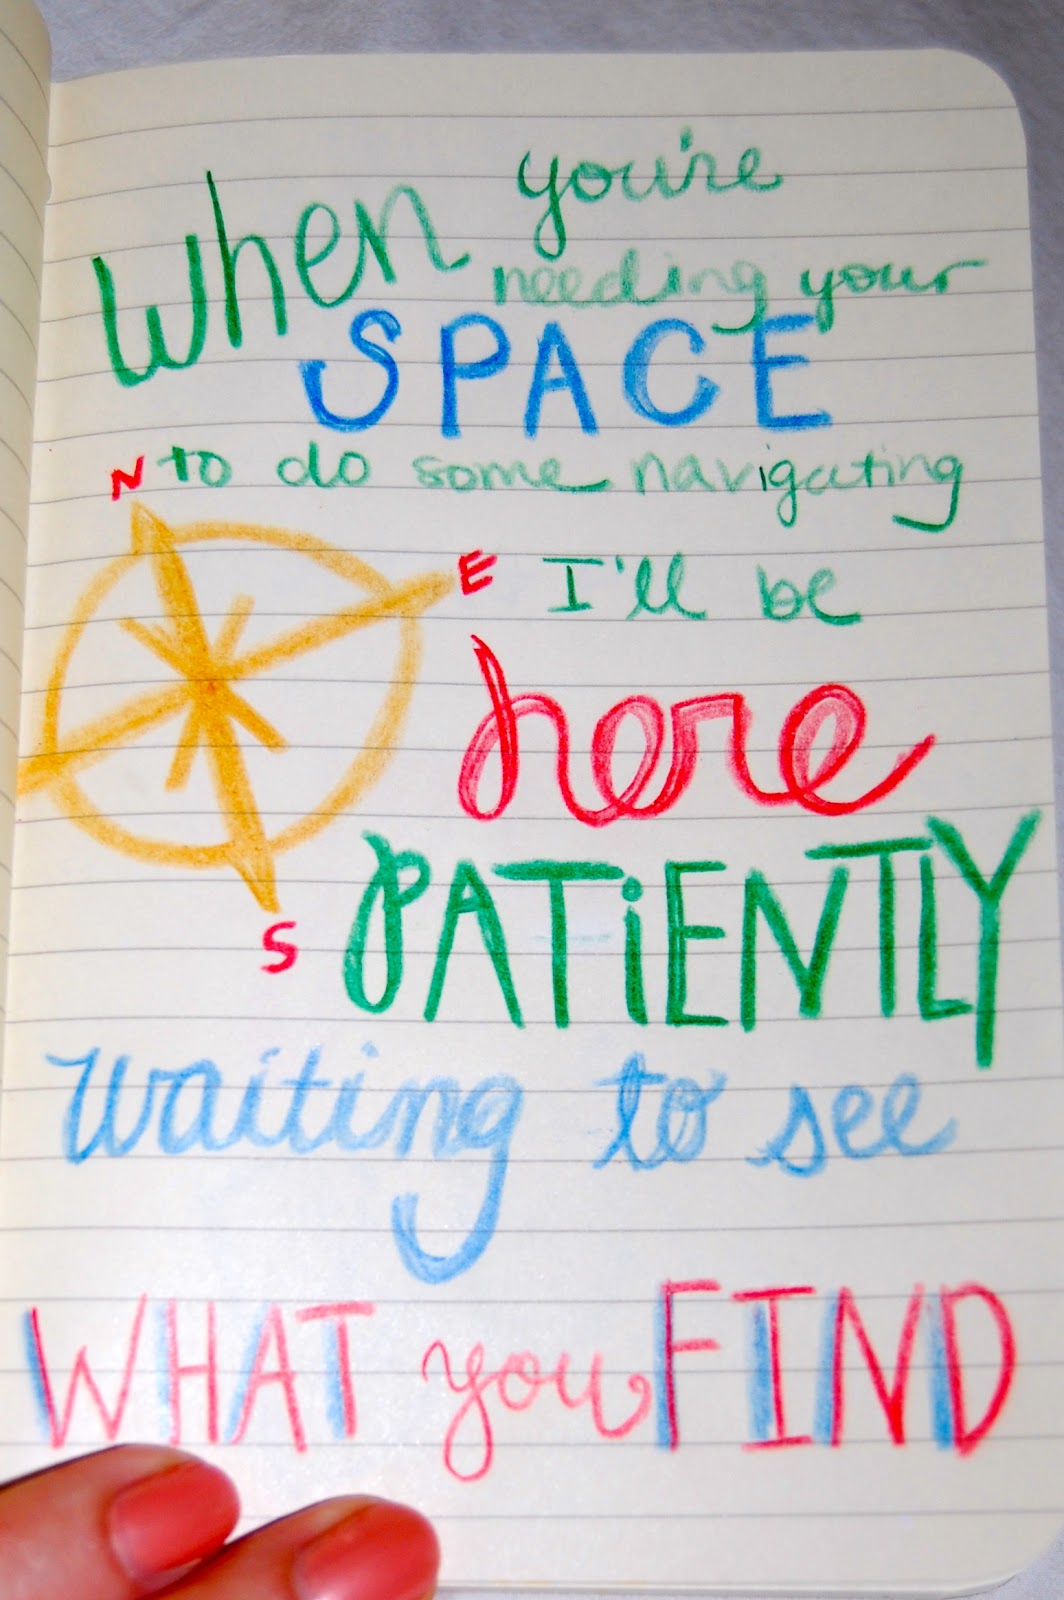 When you're
needing your
SPACE
N to do some navigating
E I'll be
here
PATiENTLY
S
waiting to see
WHAT you FIND